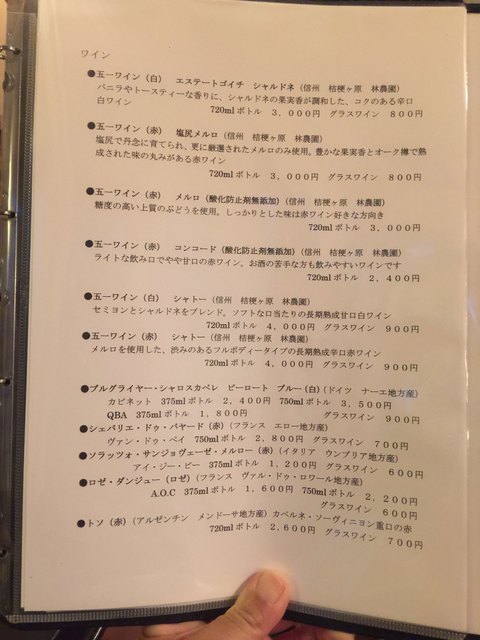 ワイン
●五一ワイン（白） エステートゴイチ シャルドネ（信州 桔梗ヶ原 林農園）
バニラやトースティーな香りに、シャルドネの果実香が調和した、コクのある辛口
白ワイン
720mlボトル 3，000円 グラスワイン 800円
●五一ワイン（赤） 塩尻メルロ（信州 桔梗ヶ原 林農園）
塩尻で丹念に育てられ、更に厳選されたメルロのみ使用。豊かな果実香とオーク樽で熟
成された味の丸みがある赤ワイン
720mlボトル 3，000円 グラスワイン 800円
●五一ワイン（赤） メルロ（酸化防止剤無添加）（信州 桔梗ヶ原 林農園）
糖度の高い上質のぶどうを使用。しっかりとした味は赤ワイン好きな方向き
720mlボトル 3，000円
●五一ワイン（赤） コンコード（酸化防止剤無添加）（信州 桔梗ヶ原 林農園）
ライトな飲み口でやや甘口の赤ワイン。お酒の苦手な方も飲みやすいワインです
720mlボトル 2，400円
●五一ワイン（白） シャトー（信州 桔梗ヶ原 林農園）
セミヨンとシャルドネをブレンド。ソフトな口当たりの長期熟成甘口白ワイン
720mlボトル 4，000円 グラスワイン 900円
●五一ワイン（赤） シャトー（信州 桔梗ヶ原 林農園）
メルロを使用した、渋みのあるフルボディータイプの長期熟成辛口赤ワイン
720mlボトル 4，000円 グラスワイン 900円
●ブルグライヤー・シャロスカベレ ピーロート ブルー（白）（ドイツ ナーエ地方産）
カビネット 375mlボトル 2，400円 750mlボトル 3，500円
QBA 375mlボトル 1，800円 グラスワイン 900円
●シェバリエ・ドゥ・バヤード（赤）（フランス エロー地方産）
ヴァン・ドゥ・ペイ 750mlボトル 2，800円 グラスワイン 700円
●ソラッツォ・サンジョヴェーゼ・メルロー（赤）（イタリア ウンブリア地方産）
アイ・ジー・ピー 375mlボトル 1，200円 グラスワイン 600円
●ロゼ・ダンジュー（ロゼ）（フランス ヴァル・ドゥ・ロワール地方産）
A.O.C 375mlボトル 1，600円 750mlボトル 2，200円
グラスワイン 600円
●トソ（赤）（アルゼンチン メンドーサ地方産）カベルネ・ソーヴィニヨン重口の赤
720mlボトル 2，600円 グラスワイン 700円